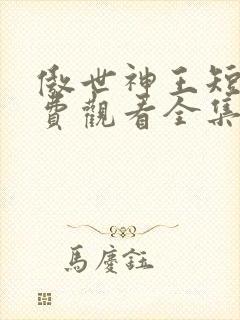 傲世神王短
費觀看全集
馬慶鈺